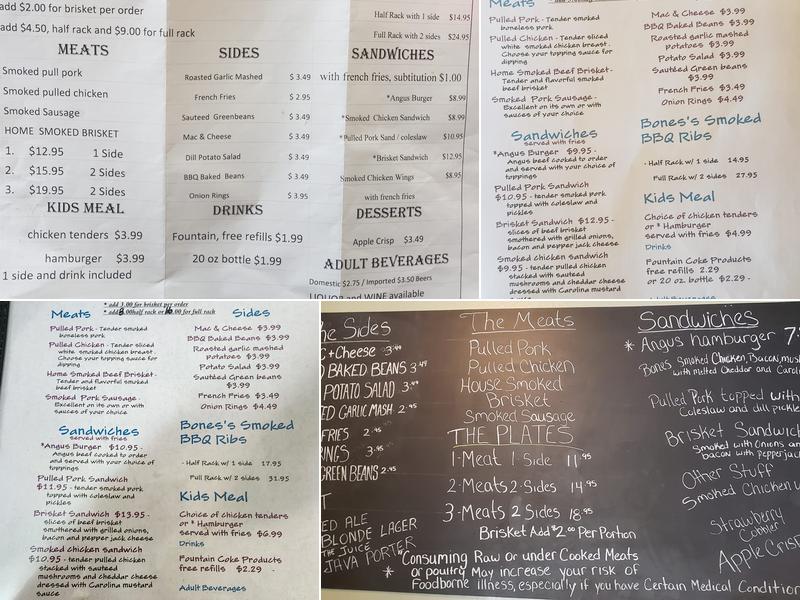 add $2.00 for brisket per order
add $4.50, half rack and $9.00 for full rack
MEATS
Smoked pull pork
Smoked pulled chicken
Smoked Sausage
HOME SMOKED BRISKET
1. $12.95 1 Side
2. $15.95 2 Sides
3. $19.95 2 Sides
KIDS MEAL
chicken tenders $3.99
hamburger $3.99
1 side and drink included
SIDES
Roasted Garlic Mashed $ 3.49
French Fries $ 2.95
Sauteed Greenbeans $ 3.49
Mac & Cheese $ 3.49
Dill Potato Salad $ 3.49
BBQ Baked Beans $ 3.49
Onion Rings $ 3.95
DRINKS
Fountain, free refills $1.99
20 oz bottle $1.99
Half Rack with 1 side $14.95
Full Rack with 2 sides $24.95
SANDWICHES
with french fries, substitution $1.00
*Angus Burger $8.99
*Smoked Chicken Sandwich $8.99
*Pulled Pork Sand / coleslaw $10.95
*Brisket Sandwich $12.95
Smoked Chicken Wings $8.95
with french fries
DESSERTS
Apple Crisp $3.49
ADULT BEVERAGES
Domestic $2.75 / Imported $3.50 Beers
LIQUOR and WINE available
Meats
Pulled Pork - Tender smoked
boneless pork
Pulled Chicken - Tender sliced
white smoked chicken breast.
Choose your topping sauce for
dipping
Home Smoked Beef Brisket-
Tender and flavorful smoked
beef brisket
Smoked Pork Sausage-
Excellent on its own or with
sauces of your choice
Sandwiches
served with fries
*Angus Burger $9.95 -
Angus beef cooked to order
and served with your choice of
toppings
Pulled Pork Sandwich
$10.95 - tender smoked pork
topped with coleslaw and
pickles
Brisket Sandwich $12.95-
slices of beef brisket
smothered with grilled onions,
bacon and pepper jack cheese
Smoked chicken sandwich
$9.95 - tender pulled chicken
stacked with sauteed
mushrooms and cheddar cheese
dressed with Carolina mustard
Mac & Cheese $3.99
BBQ Baked Beans $3.99
Roasted garlic mashed
potatoes $3.99
Potato Salad $3.99
Sautéed Green beans
$3.99
French Fries $3.49
Onion Rings $4.49
Bones's Smoked
BBQ Ribs
- Half Rack w/ 1 side 14.95
Full Rack w/ 2 sides 27.95
Kids Meal
Choice of chicken tenders
or * Hamburger
served with fries $4.99
Drinks
Fountain Coke Products
free refills 2.29
or 20 oz bottle $2.29 -
Adult Beverages
* add 3.00 for brisket per order
Meats
Pulled Pork - Tender smoked
boneless pork
Pulled Chicken - Tender sliced
white smoked chicken breast.
Choose your topping sauce for
dipping
Home Smoked Beef Brisket-
Tender and flavorful smoked
beef brisket
Smoked Pork Sausage-
Excellent on its own or with
sauces of your choice
Sandwiches
served with fries
*Angus Burger $10.95 -
Angus beef cooked to order
and served with your choice of
toppings
Pulled Pork Sandwich
$11.95 - tender smoked pork
topped with coleslaw and
pickles
Brisket Sandwich $13.95-
slices of beef brisket
smothered with grilled onions,
bacon and pepper jack cheese
Smoked chicken sandwich
$10.95 - tender pulled chicken
stacked with sauteed
mushrooms and cheddar cheese
dressed with Carolina mustard
sauce
Sides
Mac & Cheese $3.99
BBQ Baked Beans $3.99
Roasted garlic mashed
potatoes $3.99
Potato Salad $3.99
Sautéed Green beans
$3.99
French Fries $3.49
Onion Rings $4.49
Bones's Smoked
BBQ Ribs
- Half Rack w/ 1 side 17.95
Full Rack w/ 2 sides 31.95
Kids Meal
Choice of chicken tenders
or * Hamburger
served with fries $6.99
Drinks
Fountain Coke Products
free refills $2.29
Adult Beverages
he Sides
C+Cheese 3.49
BAKED BEANS 3.49
POTATO SALAD 3.49
ED GARLIC MASH 2.95
FRIES 2.95
RINGS 3.95
GREEN BEANS 2.95
ED ALE
BLONDE LAGER
THE JUICE
JAVA PORTER
The Meats
Pulled Pork
Pulled Chicken
House Smoked
Brisket
Smoked Sausage
THE PLATES
1-Meat 1-Side 11.95
2-Meats 2-Sides 14.95
3-Meats 2 Sides 18.95
Brisket Add $2.00 Per Portion
* Consuming Raw or under Cooked Meats
or poultry May increase your risk of
Foodborne illness, especially if you have Certain Medical Condition
Sandwiches
* Angus hamburger 7.
Bones Smoked Chicken, Bacon, mus
with melted Cheddar and Caroli
Pulled Pork topped with
Coleslaw and dill pickle
Brisket Sandwich
Smoked with Onions an
bacon with pepperjac
Other Stuff
Smoked Chicken w
Strawberry
Cobbler
Apple Crisp